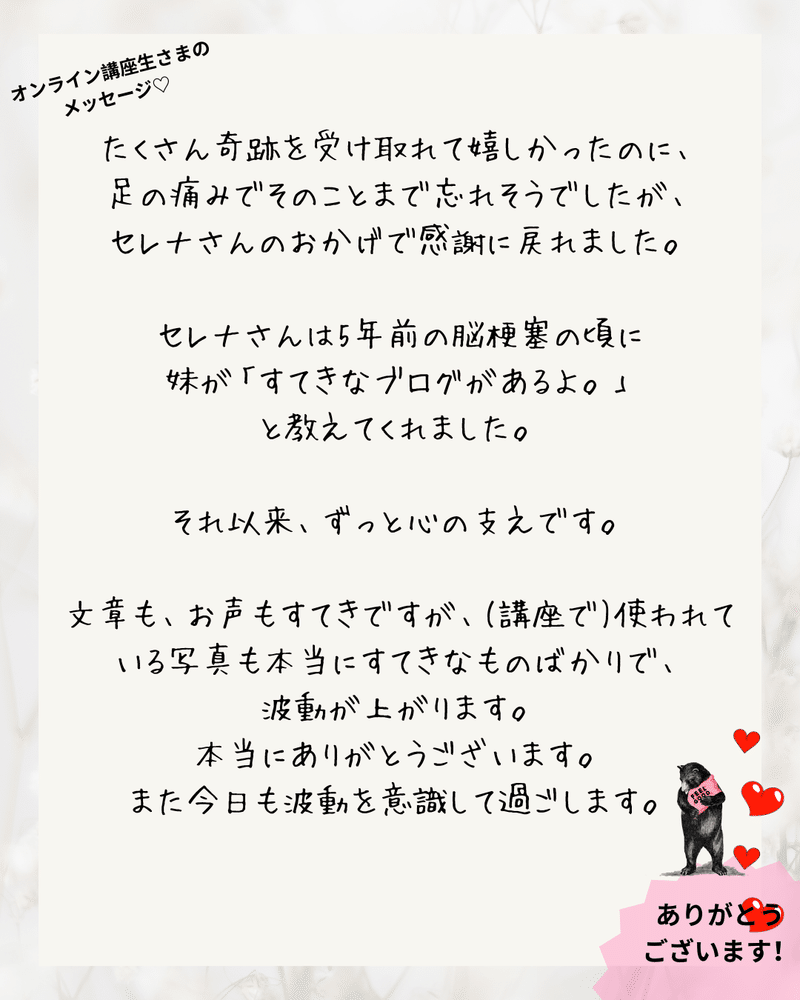 オンライン講座生さまの
メッセージ♡
たくさん奇跡を受け取れて嬉しかったのに、
足の痛みでそのことまで忘れそうでしたが、
セレナさんのおかげで感謝に戻れました。
セレナさんは5年前の脳梗塞の頃に
妹が「すてきなブログがあるよ。」
と教えてくれました。
それ以来、ずっと心の支えです。
文章も、お声もすてきですが、(講座で)使われて
いる写真も本当にすてきなものばかりで、
波動が上がります。
本当にありがとうございます。
また今日も波動を意識して過ごします。
FEEL
GOOD
ありがとう
ございます!